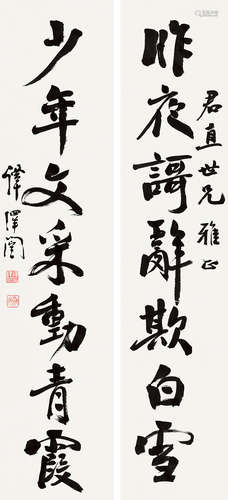 君直世兄雅正
昨夜謌辭欺白雪
少年文采動青霞
譚澤闓